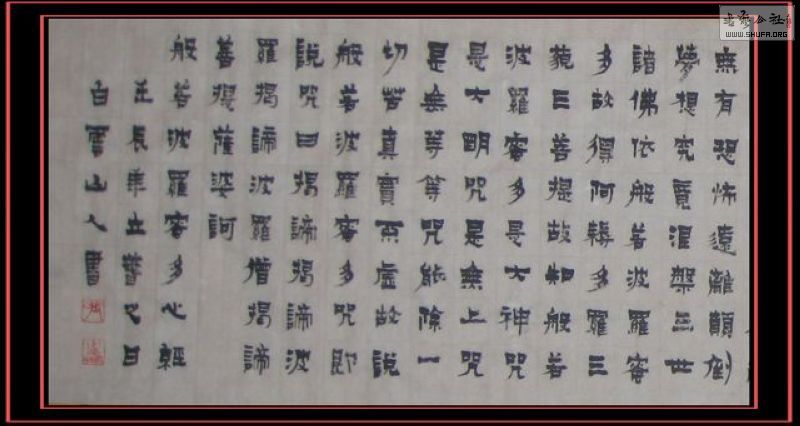 無有恐怖遠離顛倒
夢想究竟涅槃三世
諸佛依般若波羅蜜
多故得阿耨多羅三
藐三菩提故知般若
波羅蜜多是大神咒
是大明咒是無上咒
是無等等咒能除一
切苦真實不虛故說
般若波羅蜜多咒即
說咒曰揭諦揭諦波
羅揭諦波羅僧揭諦
菩提薩婆訶
般若波羅蜜多心經
年立春之日
白雲山人書
书法公社
WWW.SHUFA.ORG